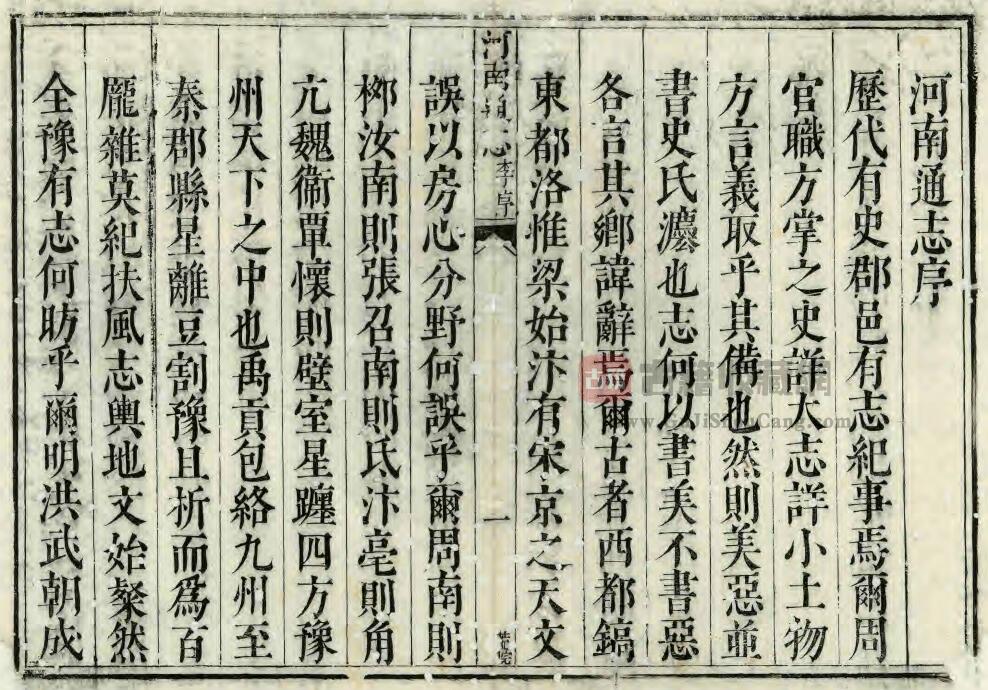 河南通志序
歷代有史郡邑有志紀事焉爾周
官職方掌之史詳大志詳小土物
方言義取乎其備也然則美惡並
書史氏灋也志何以書美不書惡
各言其鄉諱辭焉爾古者西都鎬
東都洛惟梁始汴有宋京之天文
河南通志 李序 一
誤以房心分野何誤乎爾周南則
柳汝南則張召南則氐汴亳則角
亢魏衞覃懷則壁室星躔四方豫
州天下之中也禹貢包絡九州至
秦郡縣星離豆割豫且折而爲百
龎雜莫紀扶風志輿地文始粲然
全豫有志何昉乎爾明洪武朝成
GuJiShuCang.com